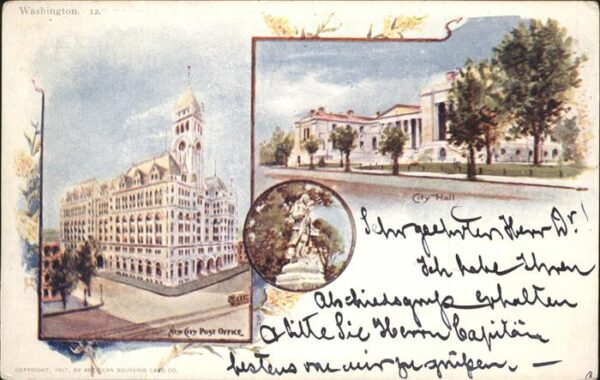 Washington. 12.
City Hall
New City Post Office.
Sehr geehrter Herr Dr.!
Ich habe Ihren
Abschiedsgruß erhalten
u bitte Sie Herrn Capitän
bestens von mir zu grüßen. —
COPYRIGHT, 1897, BY AMERICAN SOUVENIR CARD CO.